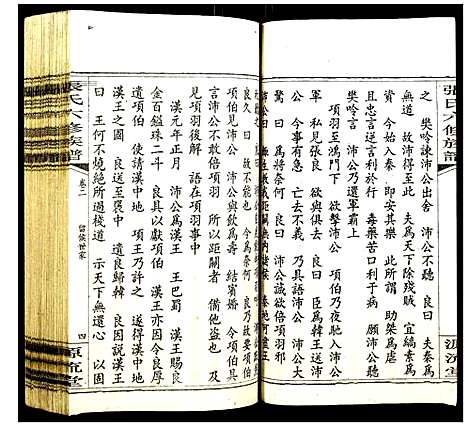 張氏六修族譜
源流堂
之 樊噲諫沛公出舍 沛公不聽 良曰 夫秦爲
無道 故沛公得至此 夫爲天下除殘賊 宜縞素爲
資 今始入秦 即安其樂 此所謂 助桀爲虐
且忠言逆耳利於行 毒藥苦口利於病 願沛公聽
樊噲言 沛公乃還軍霸上
項羽至鴻門下 欲擊沛公 項伯乃夜馳入沛公
軍 私見張良 欲與俱去 良曰 臣爲韓王送沛
公 今事有急 亡去不義 乃具語沛公 沛公大
驚 曰 爲將奈何 良曰 沛公誠欲倍項羽邪
良久 曰
項伯見沛公 沛公與飲爲壽 結賓婚 令項伯具
言沛公不敢倍項羽 所以距關者 備他盜也 及
見項羽後解 語在項羽事中
漢元年正月 沛公爲漢王 王巴蜀 漢王賜良
金百鎰珠二斗 良具以獻項伯 漢王亦因令良厚
遺項伯 使請漢中地 項王乃許之 遂得漢中地
漢王之國 良送至褒中 遣良歸韓 良因說漢王
曰 王何不燒絕所過棧道 示天下無還心 以固
張氏六修族譜
卷二 留侯世家 四
源流堂